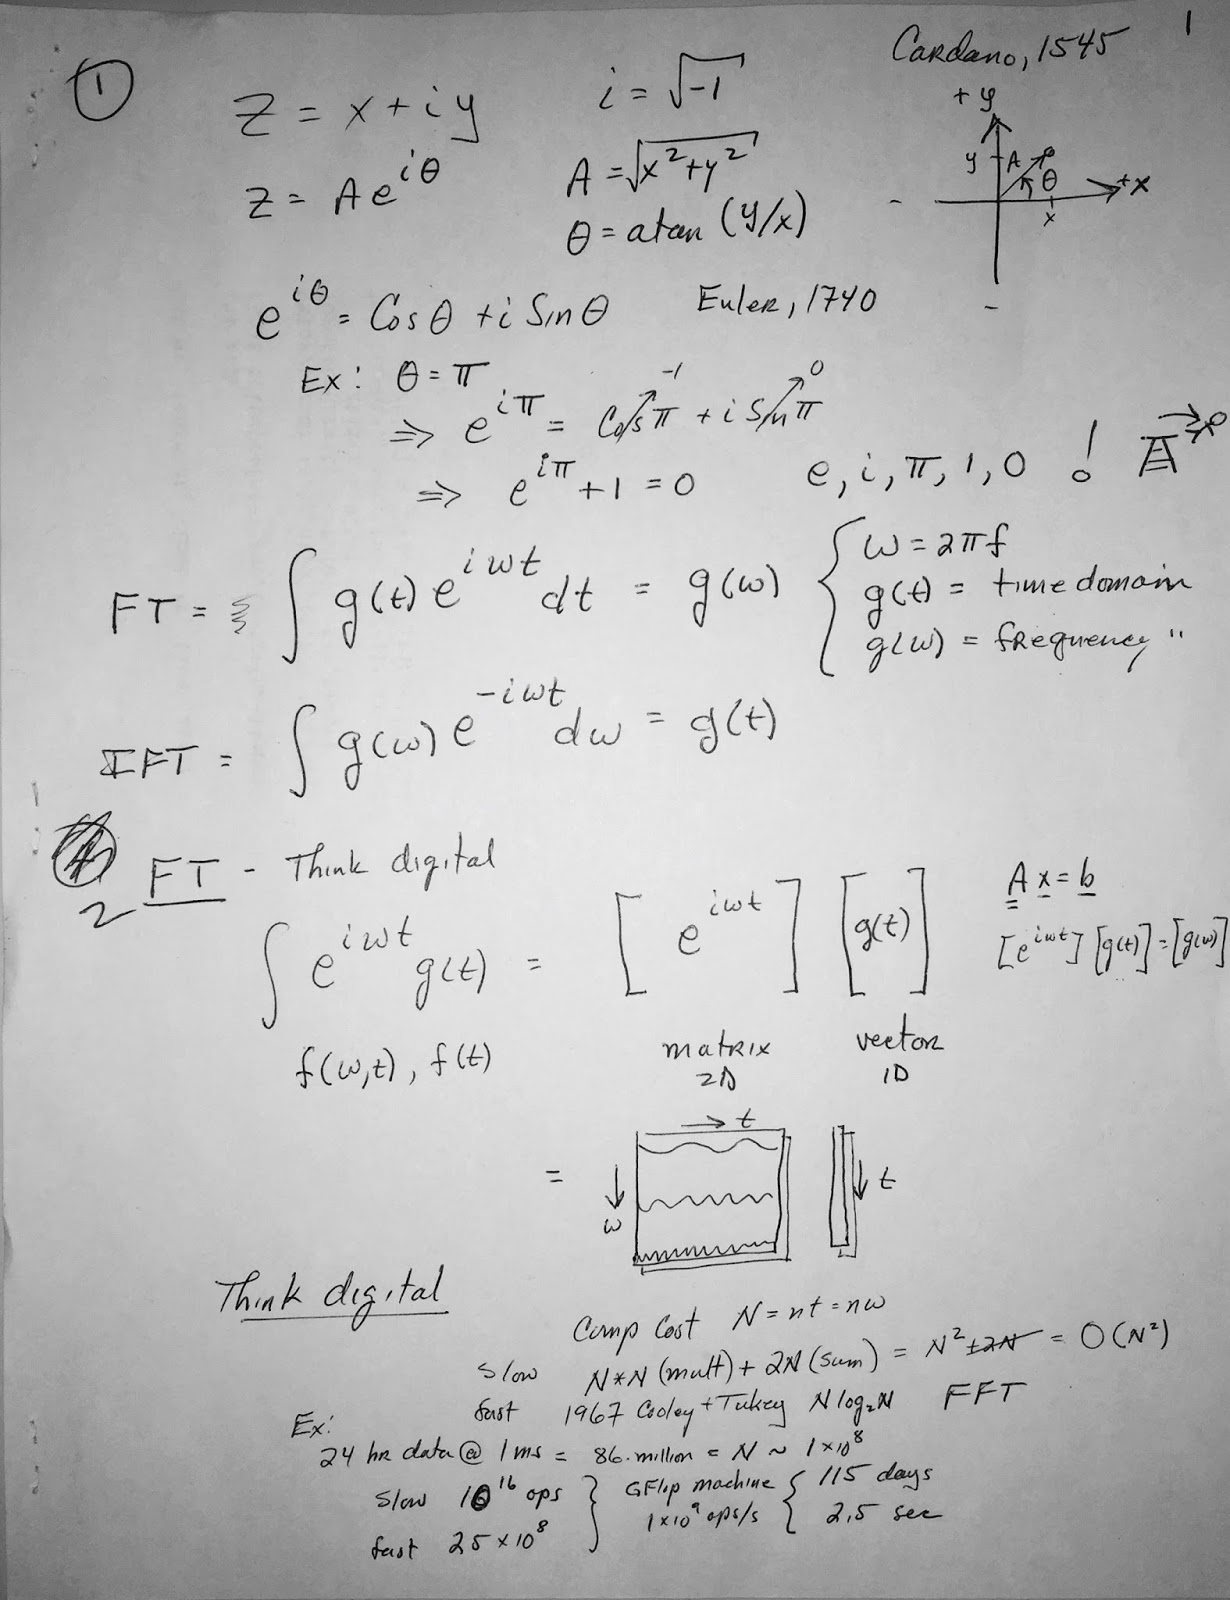 1
① Cardano, 1545
z = x + iy i = √-1
+y
y A θ +x
x
z = Ae^{iθ} A = √x²+y²
θ = atan (y/x)
e^{iθ} = Cos θ + i Sin θ Euler, 1740
Ex: θ = π -1 0
⇒ e^{iπ} = Cos π + i Sin π
⇒ e^{iπ} + 1 = 0 e, i, π, 1, 0 !
FT = ∫ g(t) e^{iωt} dt = g(ω) { ω = 2πf
g(t) = time domain
g(ω) = frequency "
IFT = ∫ g(ω) e^{-iωt} dω = g(t)
2 FT - Think digital
∫ e^{iωt} g(t) = [ e^{iωt} ] [ g(t) ] A x = b
[e^{iωt}] [g(t)] = [g(ω)]
f(ω,t), f(t) matrix vector
2D 1D
→ t
= ↓ ω ↓ t
Think digital
Comp Cost N = nt = nω
Slow N*N (mult) + 2N (sum) = N² ±2N = O(N²)
fast 1967 Cooley + Tukey N log₂N FFT
Ex:
24 hr data @ 1ms = 86. million = N ~ 1×10⁸
Slow 10¹⁶ ops } GFlop machine { 115 days
fast 25×10⁸ 1×10⁹ ops/s 2.5 sec